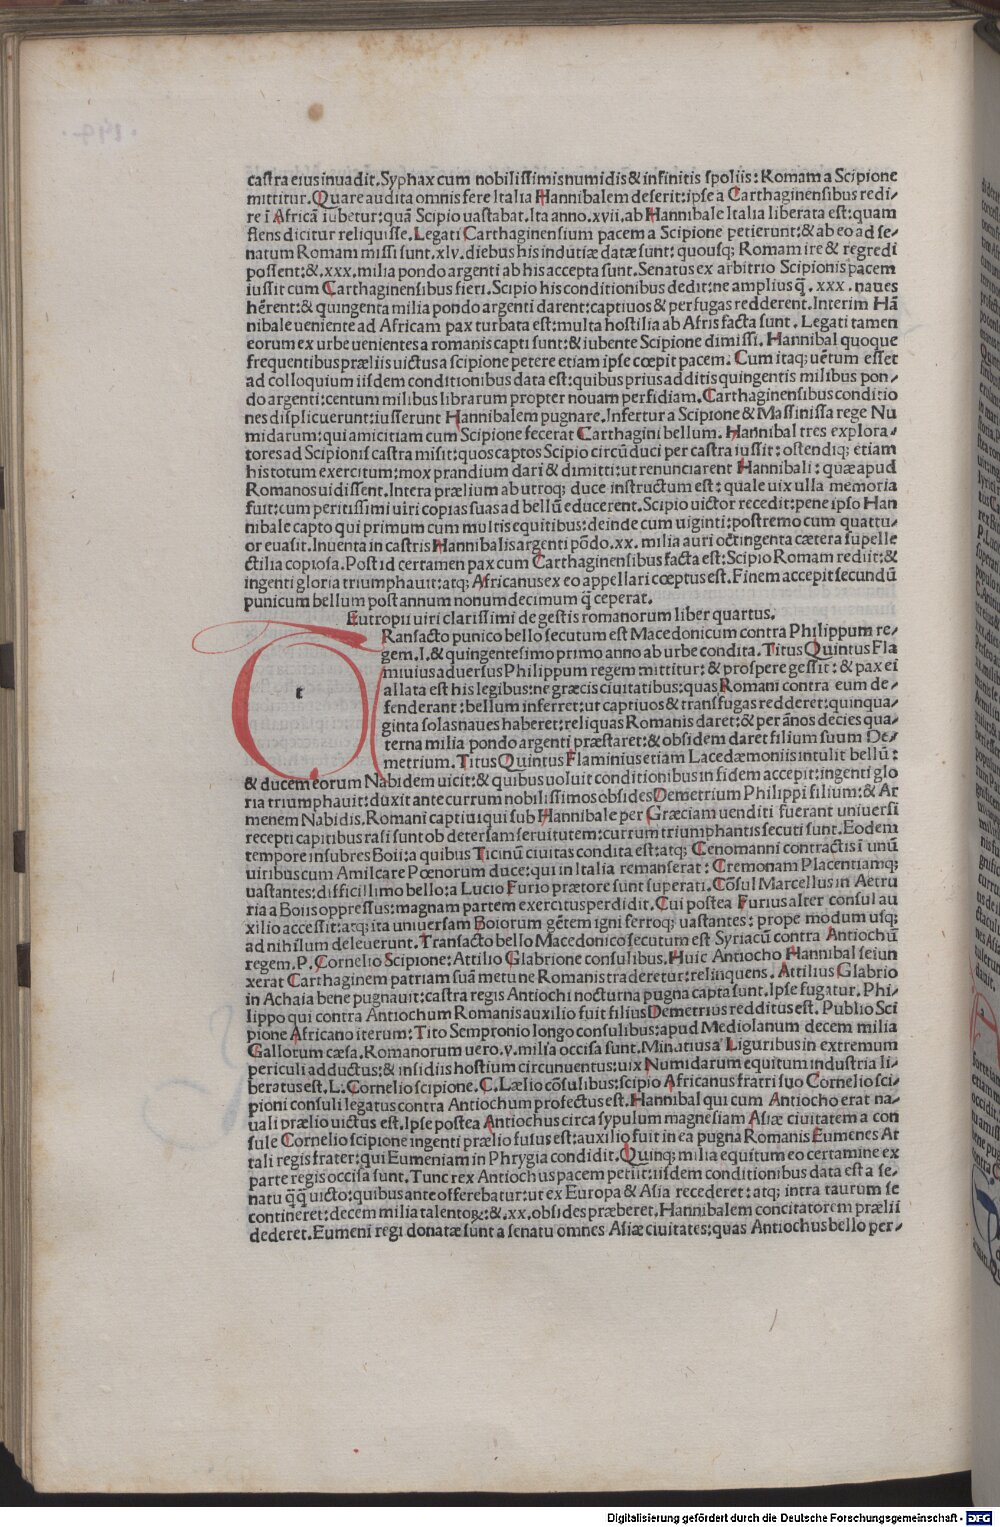 castra eius inuadit. Syphax cum nobilissimis numidis & infinitis spoliis: Romam a Scipione
mittitur. Quare audita omnis fere Italia Hannibalem deserit: ipse a Carthaginensibus redi-
re ī Africā iubetur: quā Scipio uastabat. Ita anno. xvii. ab Hannibale Italia liberata est: quam
flens dicitur reliquisse. Legati Carthaginensium pacem a Scipione petierunt: & ab eo ad se-
natum Romam missi sunt. xlv. diebus his indutiæ datæ sunt: quousq; Romam ire & regredi
possent: &. xxx. milia pondo argenti ab his accepta sunt. Senatus ex arbitrio Scipionis pacem
iussit cum Carthaginensibus fieri. Scipio his conditionibus dedit: ne amplius q̄. xxx. naues
hērent: & quingenta milia pondo argenti darent: captiuos & perfugas redderent. Interim Hā
nibale ueniente ad Africam pax turbata est: multa hostilia ab Afris facta sunt. Legati tamen
eorum ex urbe uenientes a romanis capti sunt: & iubente Scipione dimissi. Hannibal quoque
frequentibus præliis uictus a scipione petere etiam ipse cœpit pacem. Cum itaq; uētum esset
ad colloquium iisdem conditionibus data est: quibus prius additis quingentis milibus pon-
do argenti: centum milibus librarum propter nouam perfidiam. Carthaginensibus conditio
nes displicuerunt: iusserunt Hannibalem pugnare. Infertur a Scipione & Massinissa rege Nu
midarum: qui amicitiam cum Scipione fecerat Carthagini bellum. Hannibal tres explora-
tores ad Scipionis castra misit: quos captos Scipio circū duci per castra iussit: ostendiq; etiam
his totum exercitum: mox prandium dari & dimitti: ut renunciarent Hannibali: quæ apud
Romanos uidissent. Intera prælium ab utroq; duce instructum est: quale uix ulla memoria
fuit: cum peritissimi uiri copias suas ad bellū educerent. Scipio uictor recedit: pene ipso Han
nibale capto qui primum cum multis equitibus: deinde cum uiginti: postremo cum quattu-
or euasit. Inuenta in castris Hannibalis argenti pōdo. xx. milia auri octingenta cætera supelle
ctilia copiosa. Post id certamen pax cum Carthaginensibus facta est: Scipio Romam rediit: &
ingenti gloria triumphauit: atq; Africanus ex eo appellari cœptus est. Finem accepit secundū
punicum bellum post annum nonum decimum q̄ ceperat.
Eutropii uiri clarissimi de gestis romanorum liber quartus.
t
Ransacto punico bello secutum est Macedonicum contra Philippum re-
gem. I. & quingentesimo primo anno ab urbe condita. Titus Quintus Fla
miuius aduersus Philippum regem mittitur: & prospere gessit: & pax ei
allata est his legibus: ne græcis ciuitatibus: quas Romani contra eum de-
fenderant: bellum inferret: ut captiuos & transfugas redderet: quinqua-
ginta solas naues haberet: reliquas Romanis daret: & per ānos decies qua-
terna milia pondo argenti præstaret: & obsidem daret filium suum De-
metrium. Titus Quintus Flaminius etiam Lacedæmoniis intulit bellū:
& ducem eorum Nabidem uicit: & quibus uoluit conditionibus in fidem accepit: ingenti glo
ria triumphauit: duxit ante currum nobilissimos obsides Demetrium Philippi filium: & Ar
menem Nabidis. Romani captiui qui sub Hannibale per Græciam uenditi fuerant uniuersi
recepti capitibus rasi sunt ob detersam seruitutem: currum triumphantis secuti sunt. Eodem
tempore insubres Boii: a quibus Ticinū ciuitas condita est: atq; Cenomanni contractis ī unū
uiribus cum Amilcare Pœnorum duce: qui in Italia remanserat: Cremonam Placentiamq;
uastantes: difficillimo bello: a Lucio Furio prætore sunt superati. Cōsul Marcellus in Aetru
ria a Boiis oppressus: magnam partem exercitus perdidit. Cui postea Furius alter consul au
xilio accessit: atq; ita uniuersam Boiorum gētem igni ferroq; uastantes: prope modum usq;
ad nihilum deleuerunt. Transacto bello Macedonico secutum est Syriacū contra Antiochū
regem. P. Cornelio Scipione: Attilio Glabrione consulibus. Huic Antiocho Hannibal seiun
xerat Carthaginem patriam suā metu ne Romanis traderetur: relinquens. Attilius Glabrio
in Achaia bene pugnauit: castra regis Antiochi nocturna pugna capta sunt. Ipse fugatur. Phi-
lippo qui contra Antiochum Romanis auxilio fuit filius Demetrius redditus est. Publio Sci
pione Africano iterum: Tito Sempronio longo consulibus: apud Mediolanum decem milia
Gallorum cæsa. Romanorum uero. v. milia occisa sunt. Minatius a Liguribus in extremum
periculi adductus: & insidiis hostium circunuentus: uix Numidarum equitum industria li-
beratus est. L. Cornelio scipione. C. Lælio cōsulibus: scipio Africanus fratri suo Cornelio sci-
pioni consuli legatus contra Antiochum profectus est. Hannibal qui cum Antiocho erat na-
uali prælio uictus est. Ipse postea Antiochus circa sypulum magnesiam Asiæ ciuitatem a con
sule Cornelio scipione ingenti prælio fusus est: auxilio fuit in ea pugna Romanis Eumenes At
tali regis frater: qui Eumeniam in Phrygia condidit. Quinq; milia equitum eo certamine ex
parte regis occisa sunt. Tunc rex Antiochus pacem petiit: iisdem conditionibus data est a se-
natu q̄q̄ uicto: quibus ante offerebatur: ut ex Europa & Asia recederet: atq; intra taurum se
contineret: decem milia talentoꝝ: &. xx. obsides præberet. Hannibalem concitatorem prælii
dederet. Eumeni regi donatæ sunt a senatu omnes Asiæ ciuitates: quas Antiochus bello per-
Digitalisierung gefördert durch die Deutsche Forschungsgemeinschaft - DFG